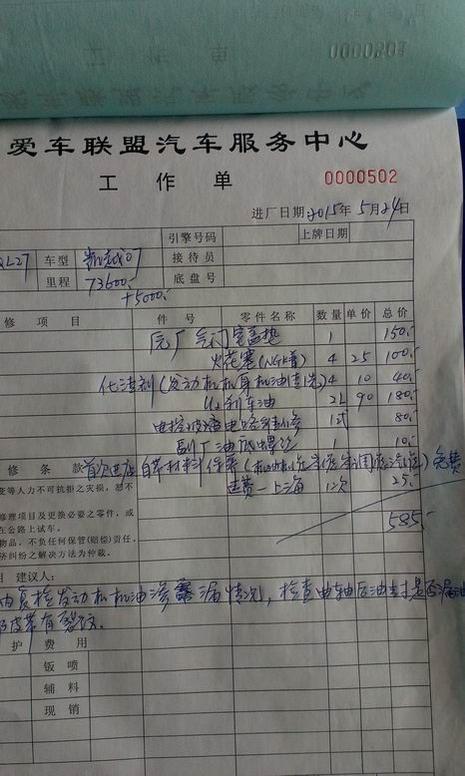 爱车联盟汽车服务中心
工 作 单 0000502
进厂日期 2015年5月24日
引擎号码 上牌日期
L27 车型 凯越07 接待员
里程 73600 底盘号
+5000
修 项 目 件 号 零件名称 数量 单价 总价
原厂气门室盖垫 1 150
火花塞(NGK普) 4 25 100
化清剂(发动机机身机油清洗) 4 10 40
刹车油 2L 90 180
电控玻璃电路维修 1 80
副厂油底螺丝 1 10
修 条 款 首次进店自带材料保养 免费
变等人力不可抗拒之灾损,恕不
运费—上海 1次 25
修理项目及更换必要之零件,或
在公路上试车。
物品,不负任何保管(赔偿)责任。 585
济纠纷之解决方法为仲裁。
目 建议人:
内复检发动机机油渗漏情况,检查曲轴后油封是否漏油
皮带有裂纹。
护 费 用
钣 喷
辅 料
现 销